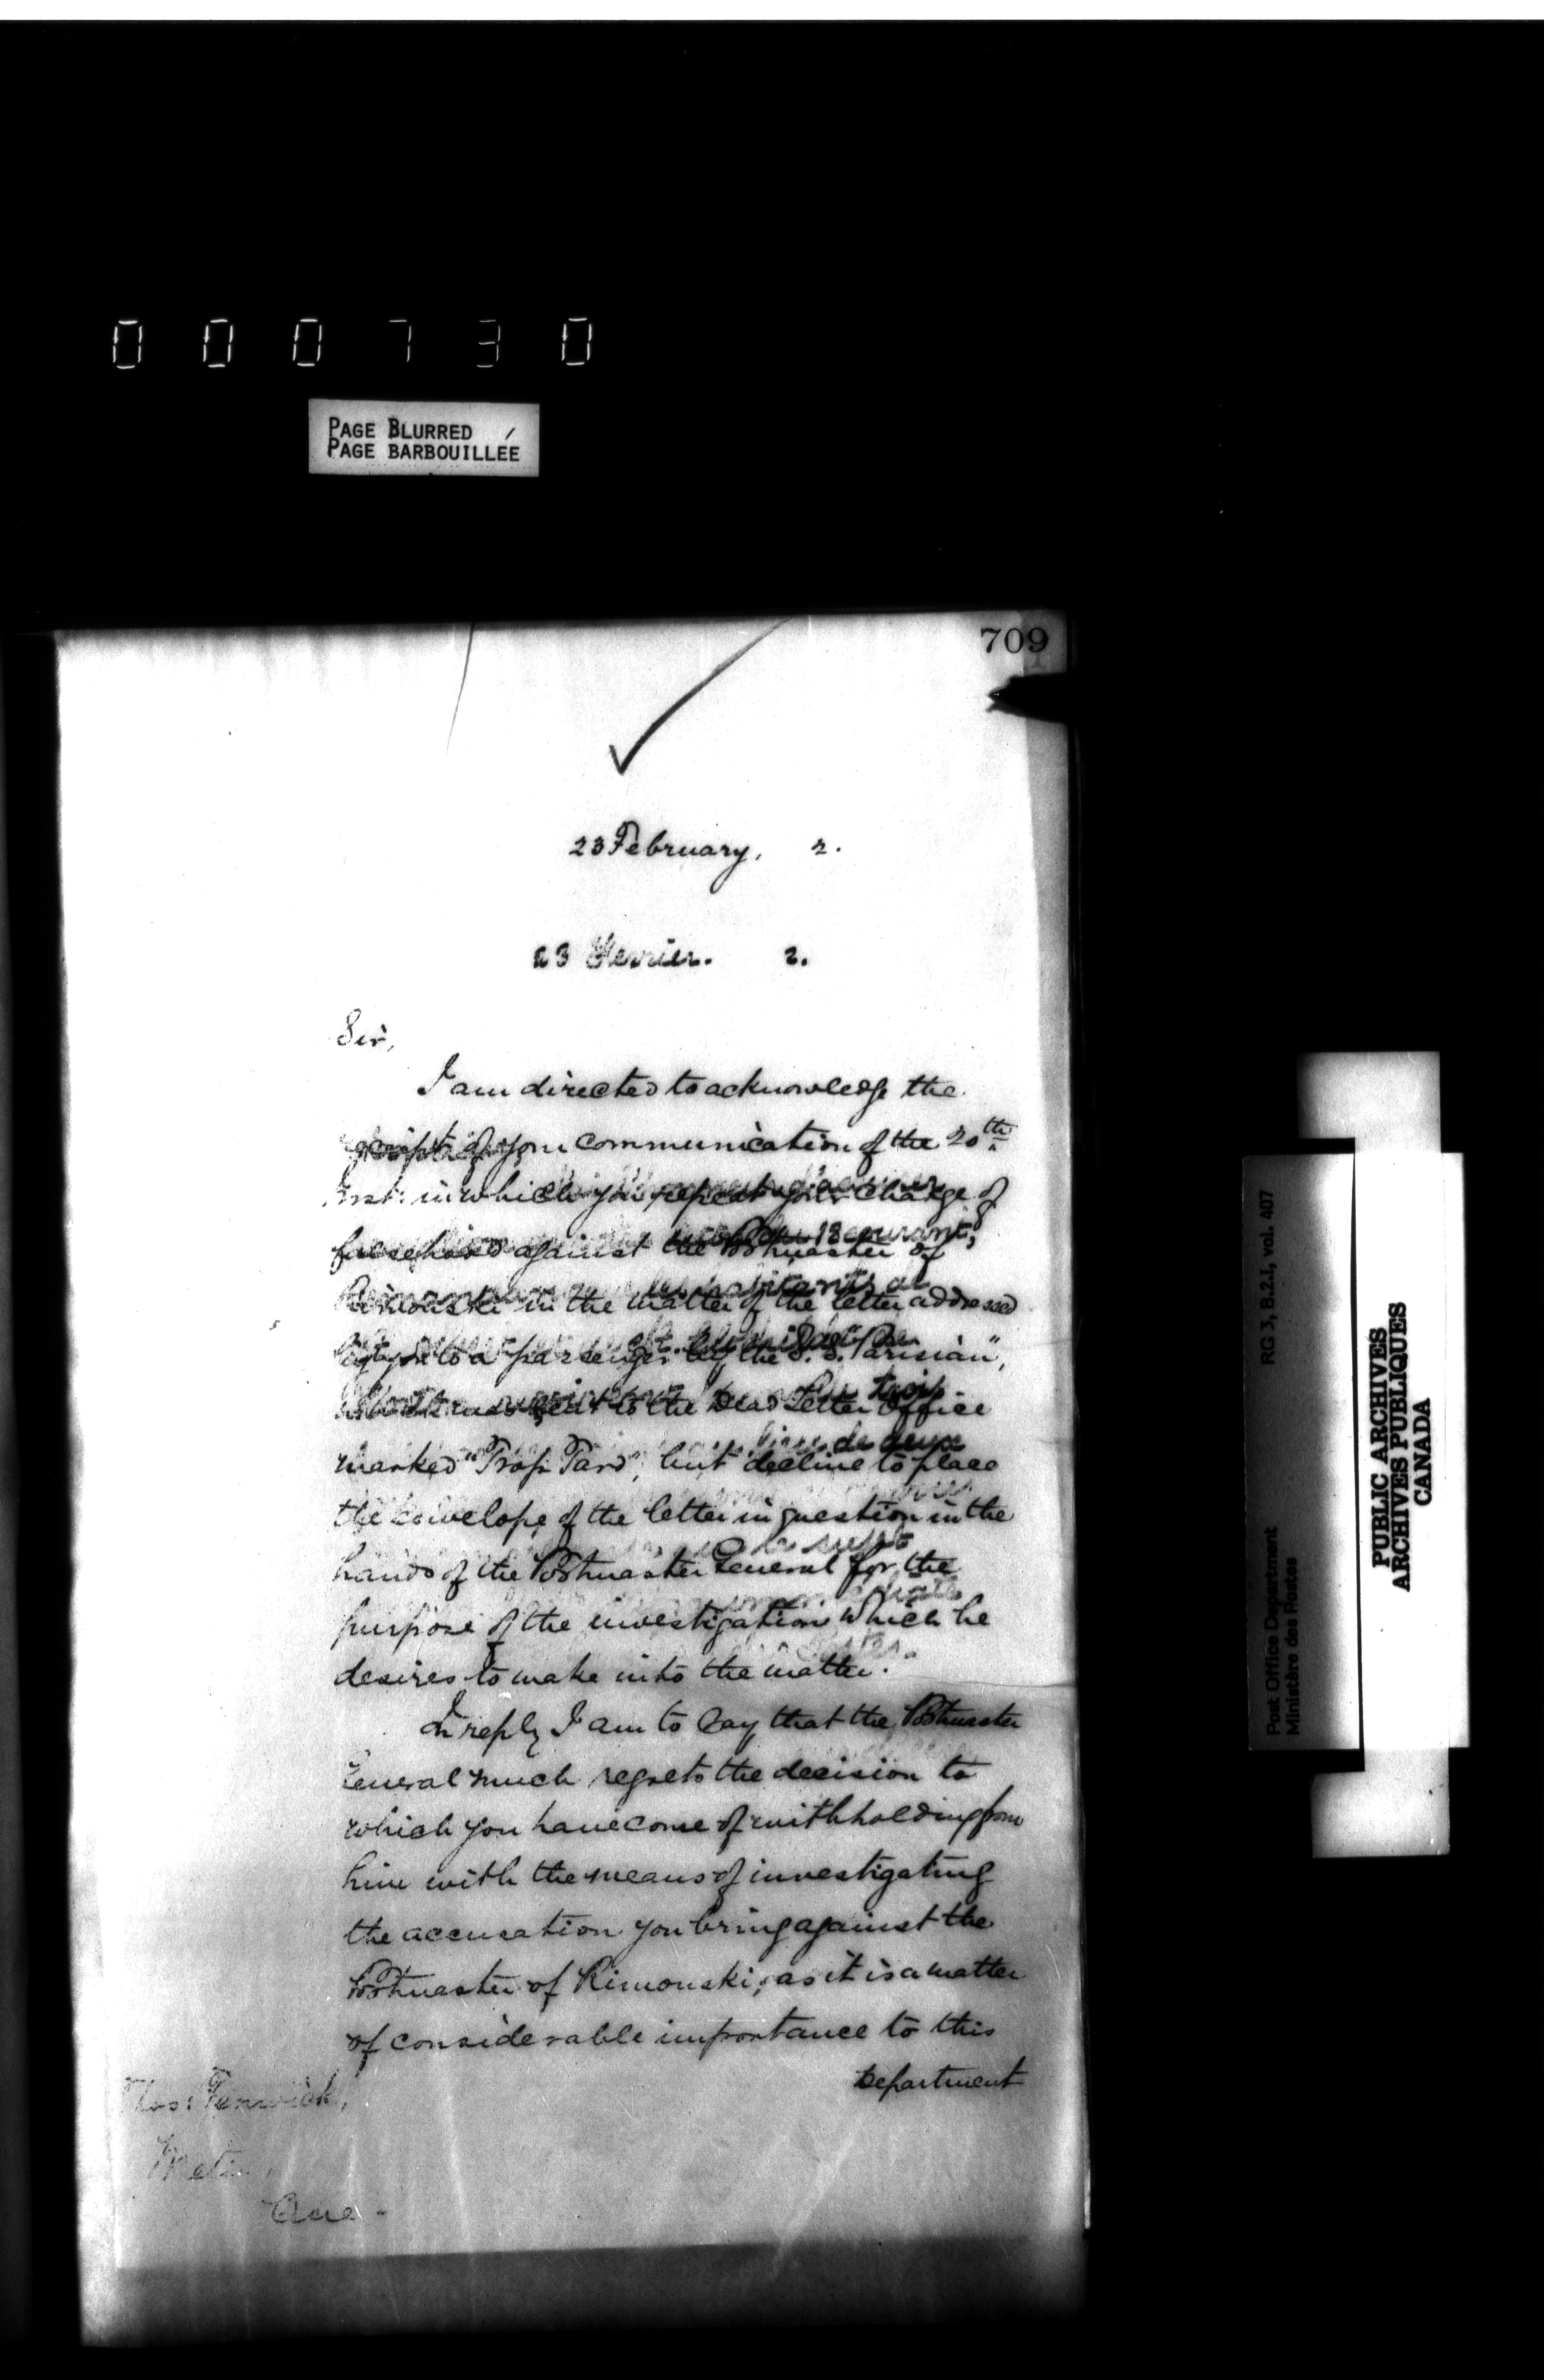 000730
PAGE BLURRED
PAGE BARBOUILLÉE
709
23 February, 2.
23 Fevrier. 2.
Sir,
I am directed to acknowledge the
receipt of your communication of the 20th
inst: in which you repeat your charge of
falsehood against the Postmaster of
18 courant,
Rimouski in the matter of the letter addressed
les habitants de
by you to a passenger by the S.S. "Parisian",
sent to the Dead Letter Office
trois
marked "Trop Tard", but decline to place
lieu de deux
the envelope of the letter in question in the
hands of the Postmaster General for the
purpose of the investigation which he
desires to make into the matter.
In reply I am to say that the Postmaster
General much regrets the decision to
which you have come of withholding from
him with the means of investigating
the accusation you bring against the
Postmaster of Rimouski, as it is a matter
of considerable importance to this
Department
Thos: Fenwick,
Metis,
Que.
Post Office Department RG 3, B.2.1, vol. 407
Ministère des Postes
PUBLIC ARCHIVES
ARCHIVES PUBLIQUES
CANADA